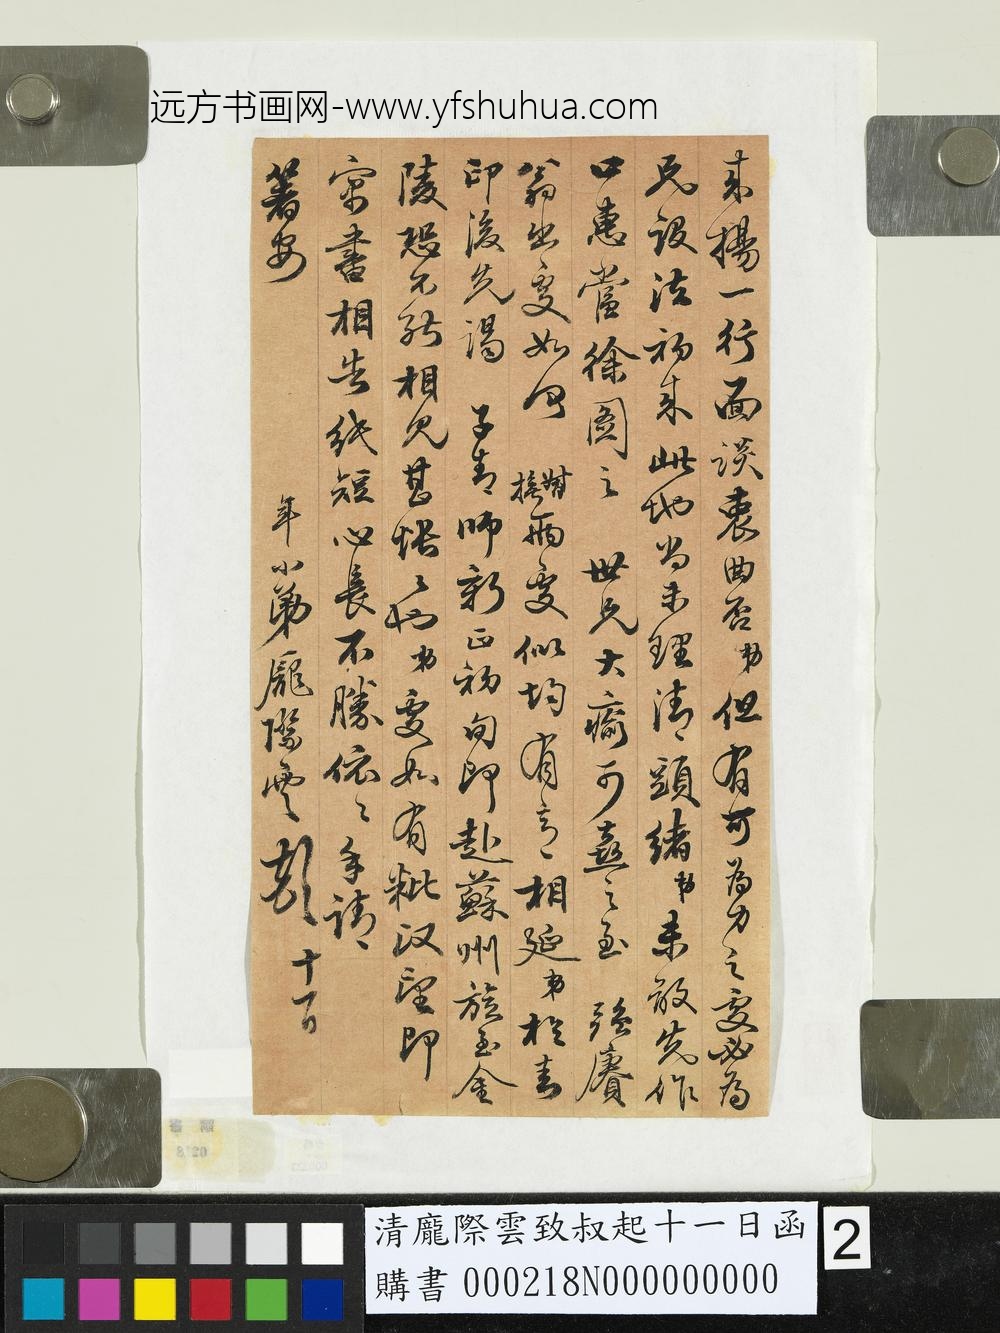 远方书画网-www.yfshuhua.com
來揚一行面談衷曲否弟但有可為力之處必為
兄設法初來此地尚未理清頭緒弟未敢先作
口惠當徐圖之 世兄大癒可喜之至 廣
翁出處如何 兩處似均有意相延弟於春
印後先謁 子青師新正初旬即赴蘇州旋至金
陵恐不能相見甚悵〻也弟處如有妣汉望即
家書相告紙短心長不勝依〻手請
箸安
年小弟龐際雲頓 十一日
清龐際雲致叔起十一日函
購書 000218N000000000
2